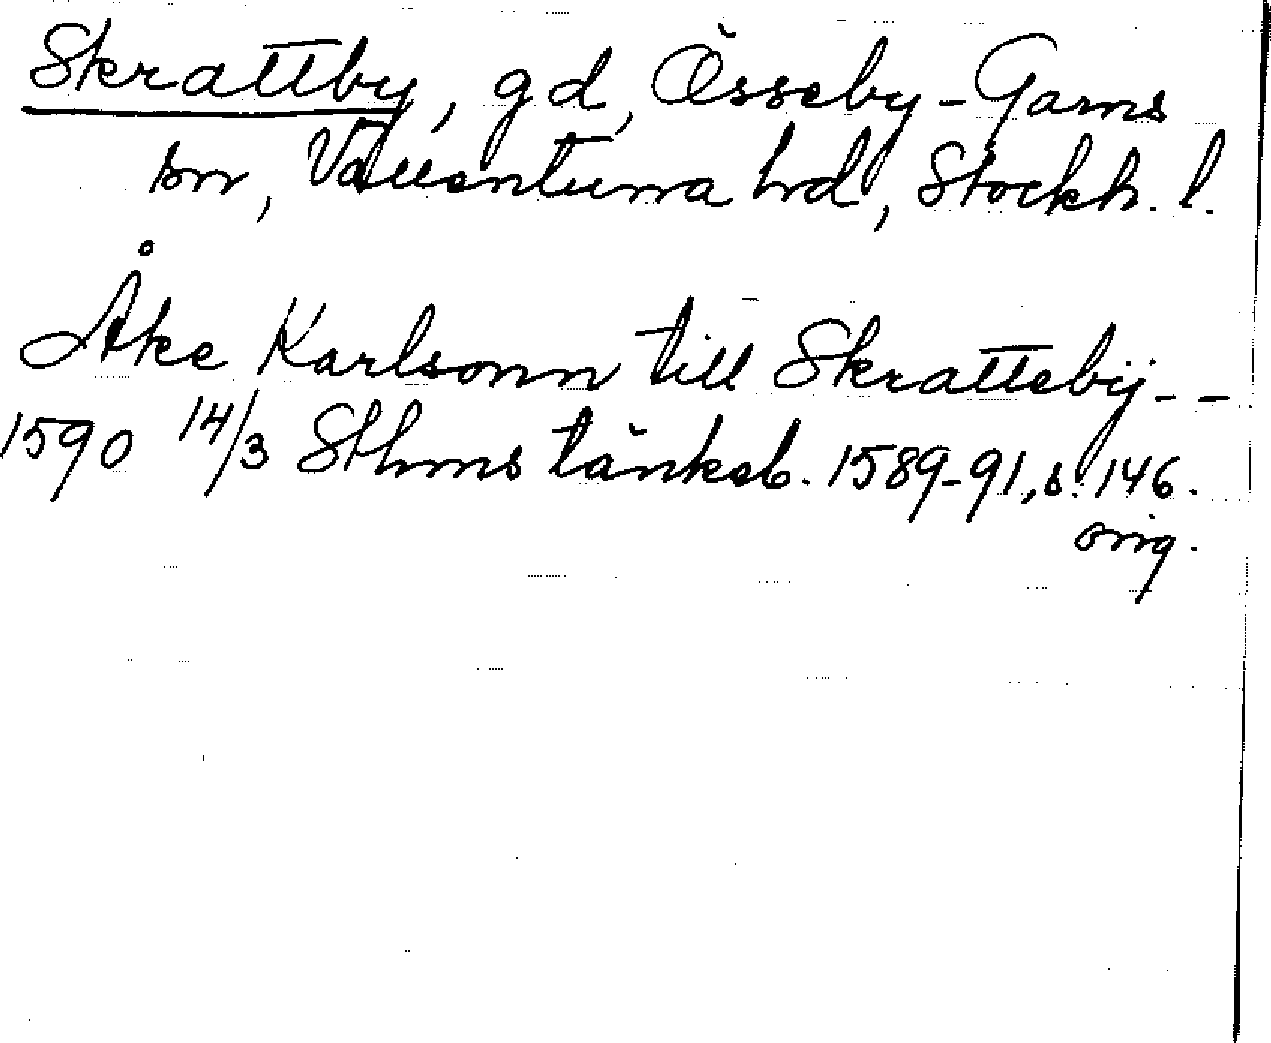 Skrattby, gd, Össeby-Garns
sn, Vallentuna hrd, Stockh. l.
Åke Karlsonn till Skrattebÿ--
1590 14/3 Sthms tänkeb. 1589-91, s. 146.
orig.